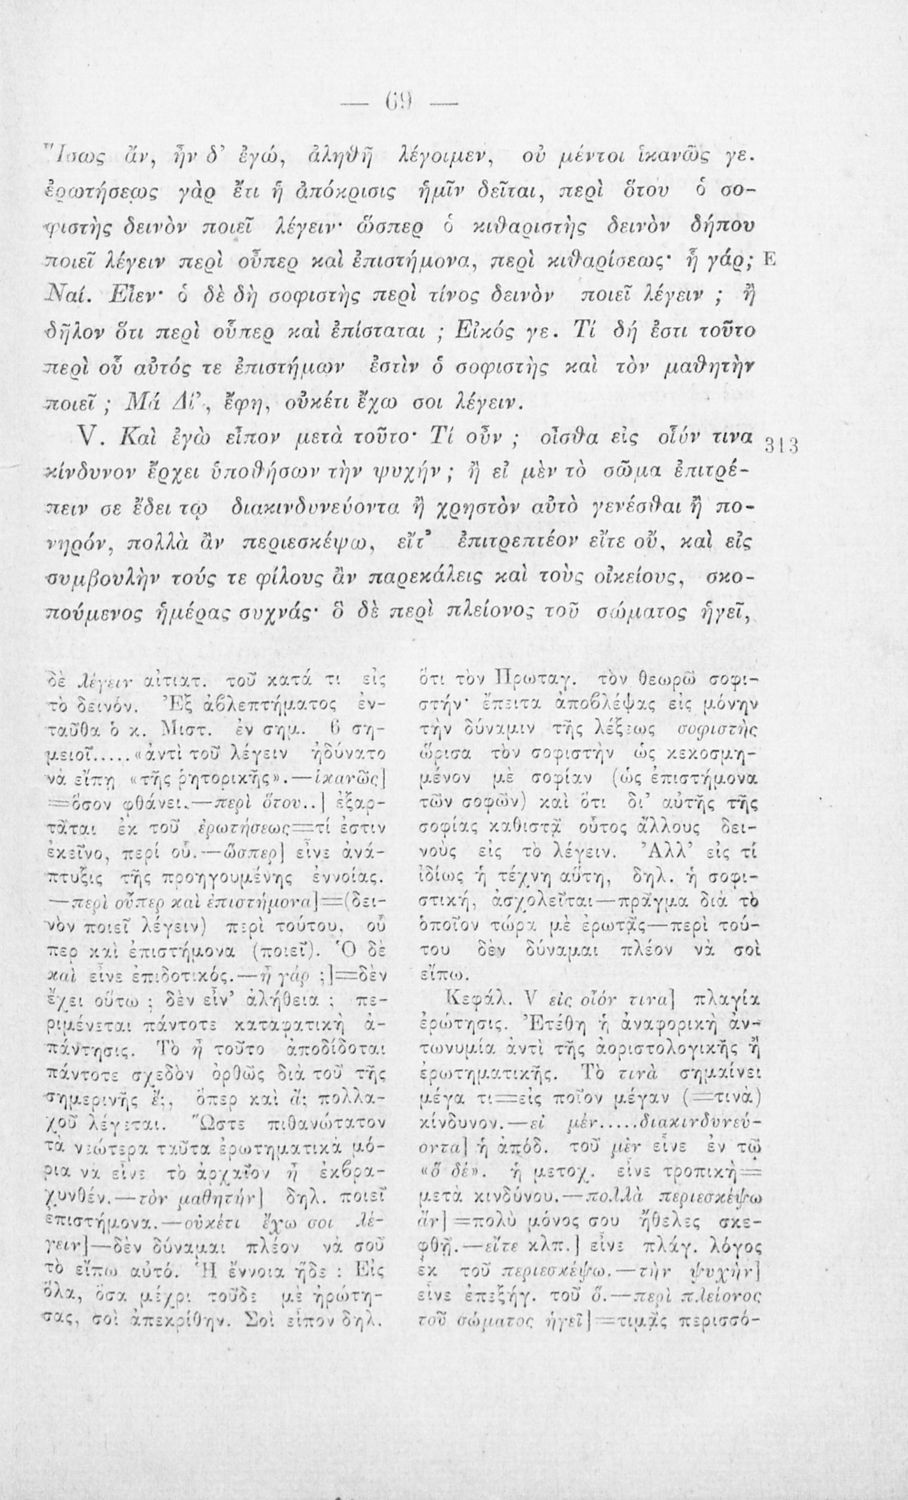 — 69 —
Ἴσως ἄν, ἦν δ' ἐγώ, ἀληθῆ λέγοιμεν, οὐ μέντοι ἱκανῶς γε.
ἐρωτήσεως γὰρ ἔτι ἡ ἀπόκρισις ἡμῖν δεῖται, περὶ ὅτου ὁ σο-
φιστὴς δεινὸν ποιεῖ λέγειν· ὥσπερ ὁ κιθαριστὴς δεινὸν δήπου
ποιεῖ λέγειν περὶ οὗπερ καὶ ἐπιστήμονα, περὶ κιθαρίσεως· ἦ γάρ; E
Ναί. Εἶεν· ὁ δὲ δὴ σοφιστὴς περὶ τίνος δεινὸν ποιεῖ λέγειν ; ἢ
δῆλον ὅτι περὶ οὗπερ καὶ ἐπίσταται ; Εἰκός γε. Τί δή ἐστι τοῦτο
περὶ οὗ αὐτός τε ἐπιστήμων ἐστὶν ὁ σοφιστὴς καὶ τὸν μαθητὴν
ποιεῖ ; Μά Δί', ἔφη, οὐκέτι ἔχω σοι λέγειν.
V. Καὶ ἐγὼ εἶπον μετὰ τοῦτο· Τί οὖν ; οἶσθα εἰς οἷόν τινα 313
κίνδυνον ἔρχει ὑποθήσων τὴν ψυχήν ; ἢ εἰ μὲν τὸ σῶμα ἐπιτρέ-
πειν σε ἔδει τῳ διακινδυνεύοντα ἢ χρηστὸν αὐτὸ γενέσθαι ἢ πο-
νηρόν, πολλὰ ἂν περιεσκέψω, εἴτ' ἐπιτρεπτέον εἴτε οὔ, καὶ εἰς
συμβουλὴν τούς τε φίλους ἂν παρεκάλεις καὶ τοὺς οἰκείους, σκο-
πούμενος ἡμέρας συχνάς· ὃ δὲ περὶ πλείονος τοῦ σώματος ἡγεῖ,
δὲ λέγειν αἰτιατ. τοῦ κατά τι εἰς
τὸ δεινόν. Ἐξ ἀβλεπτήματος ἐν-
ταῦθα ὁ κ. Μιστ. ἐν σημ. 6 ση-
μειοῖ.....«ἀντὶ τοῦ λέγειν ἠδύνατο
νὰ εἴπῃ «τῆς ῥητορικῆς».—ἱκανῶς]
=ὅσον φθάνει.—περὶ ὅτου..] ἐξαρ-
τᾶται ἐκ τοῦ ἐρωτήσεως=τί ἐστιν
ἐκεῖνο, περί οὗ.—ὥσπερ] εἶνε ἀνά-
πτυξις τῆς προηγουμένης ἐννοίας.
—περὶ οὗπερ καὶ ἐπιστήμονα]=(δει-
νὸν ποιεῖ λέγειν) περὶ τούτου, οὗ
περ καὶ ἐπιστήμονα (ποιεῖ). Ὁ δὲ
καὶ εἶνε ἐπιδοτικός.—ἦ γάρ ;]=δὲν
ἔχει οὕτω ; δὲν εἶν' ἀλήθεια ; πε-
ριμένεται πάντοτε καταφατικὴ ἀ-
πάντησις. Τὸ ἦ τοῦτο ἀποδίδοται
πάντοτε σχεδὸν ὀρθῶς διὰ τοῦ τῆς
σημερινῆς ἔ;, ὅπερ καὶ ἄ; πολλα-
χοῦ λέγεται. Ὥστε πιθανώτατον
τὰ νεώτερα ταῦτα ἐρωτηματικὰ μό-
ρια νὰ εἶνε τὸ ἀρχαῖον ἦ ἐκβρα-
χυνθέν.—τὸν μαθητήν] δηλ. ποιεῖ
ἐπιστήμονα.—οὐκέτι ἔχω σοι λέ-
γειν]—δὲν δύναμαι πλέον νὰ σοῦ
τὸ εἴπω αὐτό. Ἡ ἔννοια ἥδε : Εἰς
ὅλα, ὅσα μέχρι τοῦδε μὲ ἠρώτη-
σας, σοὶ ἀπεκρίθην. Σοὶ εἶπον δηλ.
ὅτι τὸν Πρωταγ. τὸν θεωρῶ σοφι-
στήν· ἔπειτα ἀποβλέψας εἰς μόνην
τὴν δύναμιν τῆς λέξεως σοφιστὴς
ὥρισα τὸν σοφιστὴν ὡς κεκοσμη-
μένον μὲ σοφίαν (ὡς ἐπιστήμονα
τῶν σοφῶν) καὶ ὅτι δι' αὐτῆς τῆς
σοφίας καθιστᾷ οὗτος ἄλλους δει-
νοὺς εἰς τὸ λέγειν. Ἀλλ' εἰς τί
ἰδίως ἡ τέχνη αὕτη, δηλ. ἡ σοφι-
στική, ἀσχολεῖται—πρᾶγμα διὰ τὸ
ὁποῖον τώρα μὲ ἐρωτᾷς—περὶ τού-
του δὲν δύναμαι πλέον νὰ σοὶ
εἴπω.
Κεφάλ. V εἰς οἷόν τινα] πλαγία
ἐρώτησις. Ἐτέθη ἡ ἀναφορικὴ ἀν-
τωνυμία ἀντὶ τῆς ἀοριστολογικῆς ἢ
ἐρωτηματικῆς. Τὸ τινὰ σημαίνει
μέγα τι=εἰς ποῖον μέγαν (=τινὰ)
κίνδυνον.—εἰ μὲν.....διακινδυνεύ-
οντα] ἡ ἀπόδ. τοῦ μὲν εἶνε ἐν τῷ
«ὃ δέ». ἡ μετοχ. εἶνε τροπικὴ=
μετὰ κινδύνου.—πολλὰ περιεσκέψω
ἂν]=πολὺ μόνος σου ἤθελες σκε-
φθῆ.—εἴτε κλπ.] εἶνε πλάγ. λόγος
ἐκ τοῦ περιεσκέψω.—τὴν ψυχήν]
εἶνε ἐπεξήγ. τοῦ ὅ.—περὶ πλείονος
τοῦ σώματος ἡγεῖ]=τιμᾷς περισσό-